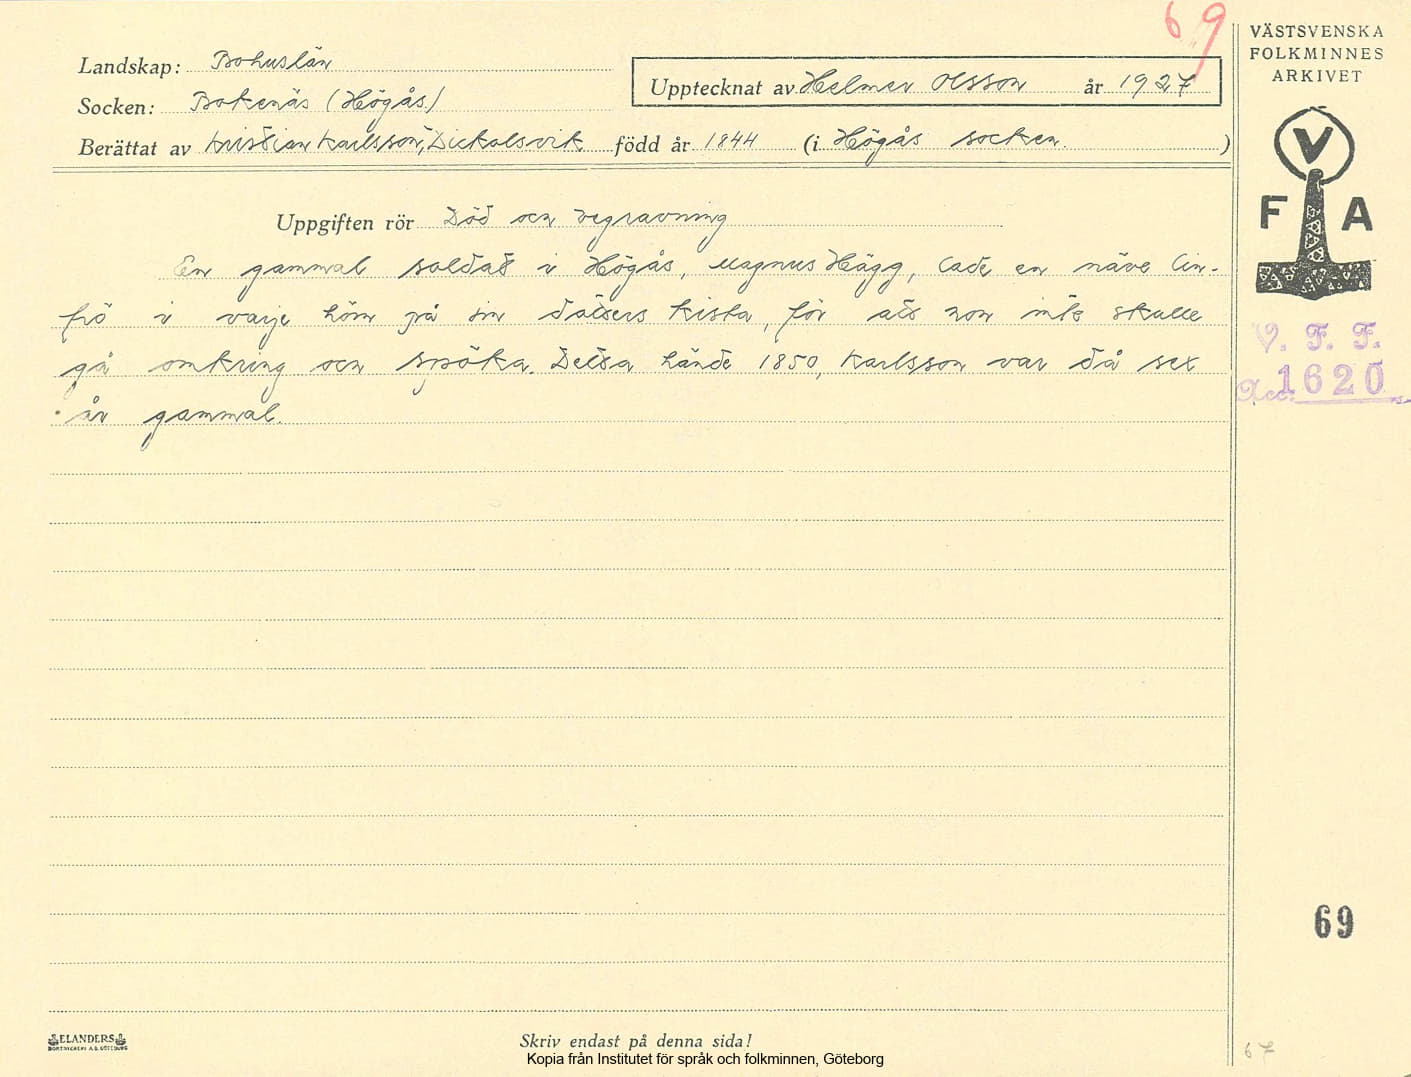 69
VÄSTSVENSKA
FOLKMINNES
ARKIVET
Landskap: Bohuslän
Upptecknat av Helmer Olsson år 1927
Socken: Bokenäs (Högås)
Berättat av Kristian Karlsson, Dickalsvik född år 1844 (i Högås socken )
V
F A
Uppgiften rör Död och begravning
En gammal soldat i Högås, Magnus Hägg, lade en näve lin-
frö i varje hörn på sin dotters kista, för att hon inte skulle
gå omkring och spöka. Detta hände 1850, Karlsson var då sex
år gammal.
V. F. F.
Acc. 1620
69
ELANDERS
BOKTRYCKERI A.B. GÖTEBORG
Skriv endast på denna sida!
Kopia från Institutet för språk och folkminnen, Göteborg
67